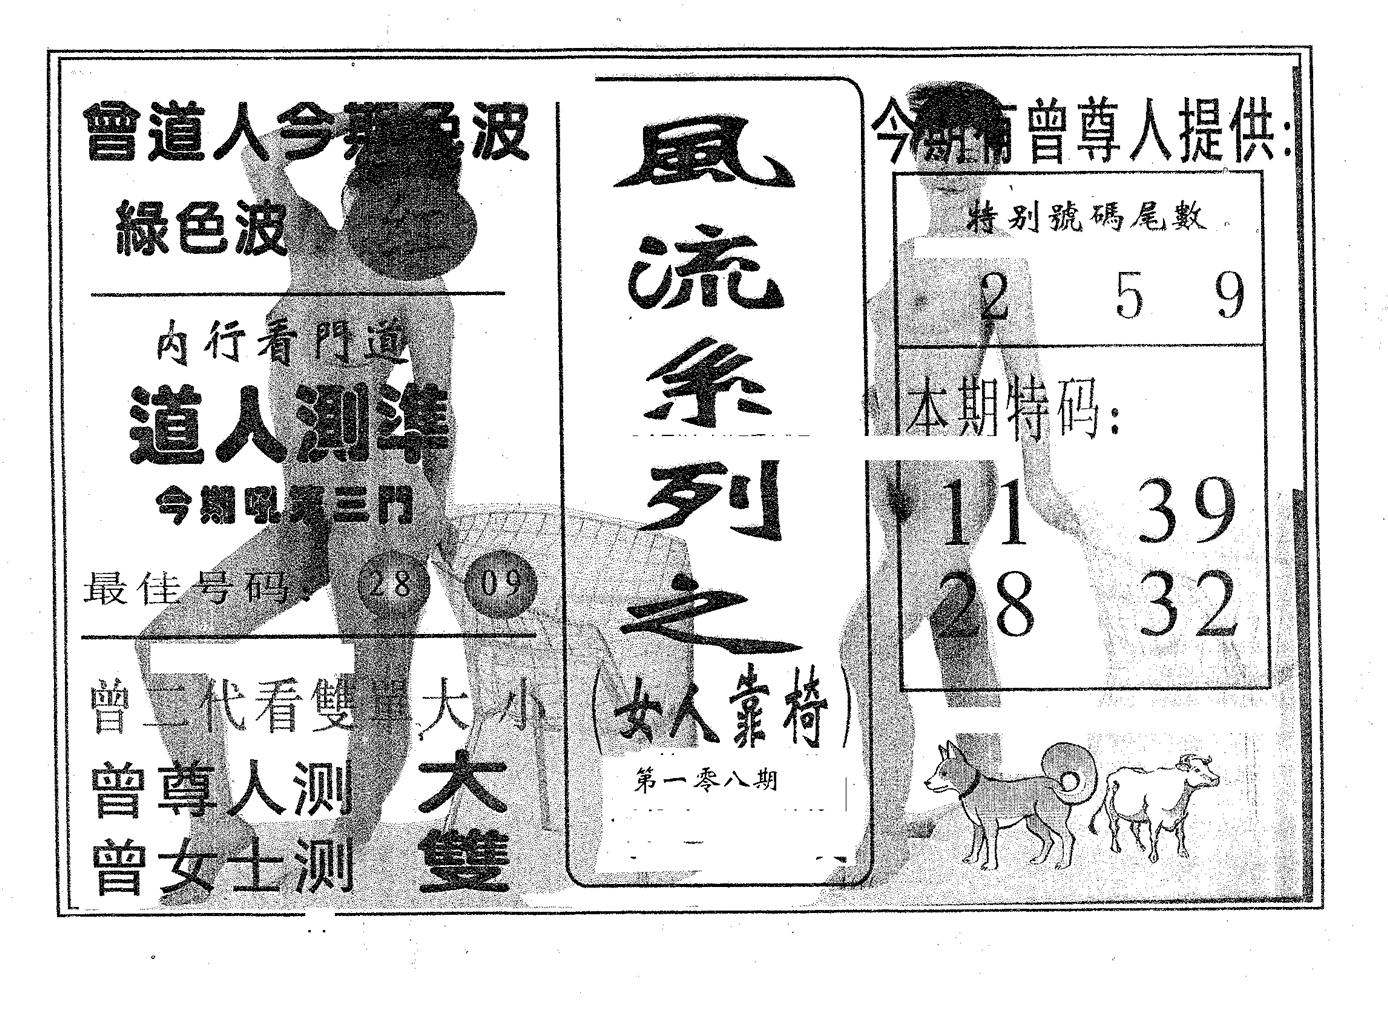 曾道人今期色波
綠色波
內行看門道
道人測準
今期吼第三門
最佳号码：28 09
曾二代看雙單大小
曾尊人测 大
曾女士测 雙
風流系列之
（女人靠椅）
第一零八期
今期有曾尊人提供：
特别號碼尾數
2 5 9
本期特码：
11 39
28 32